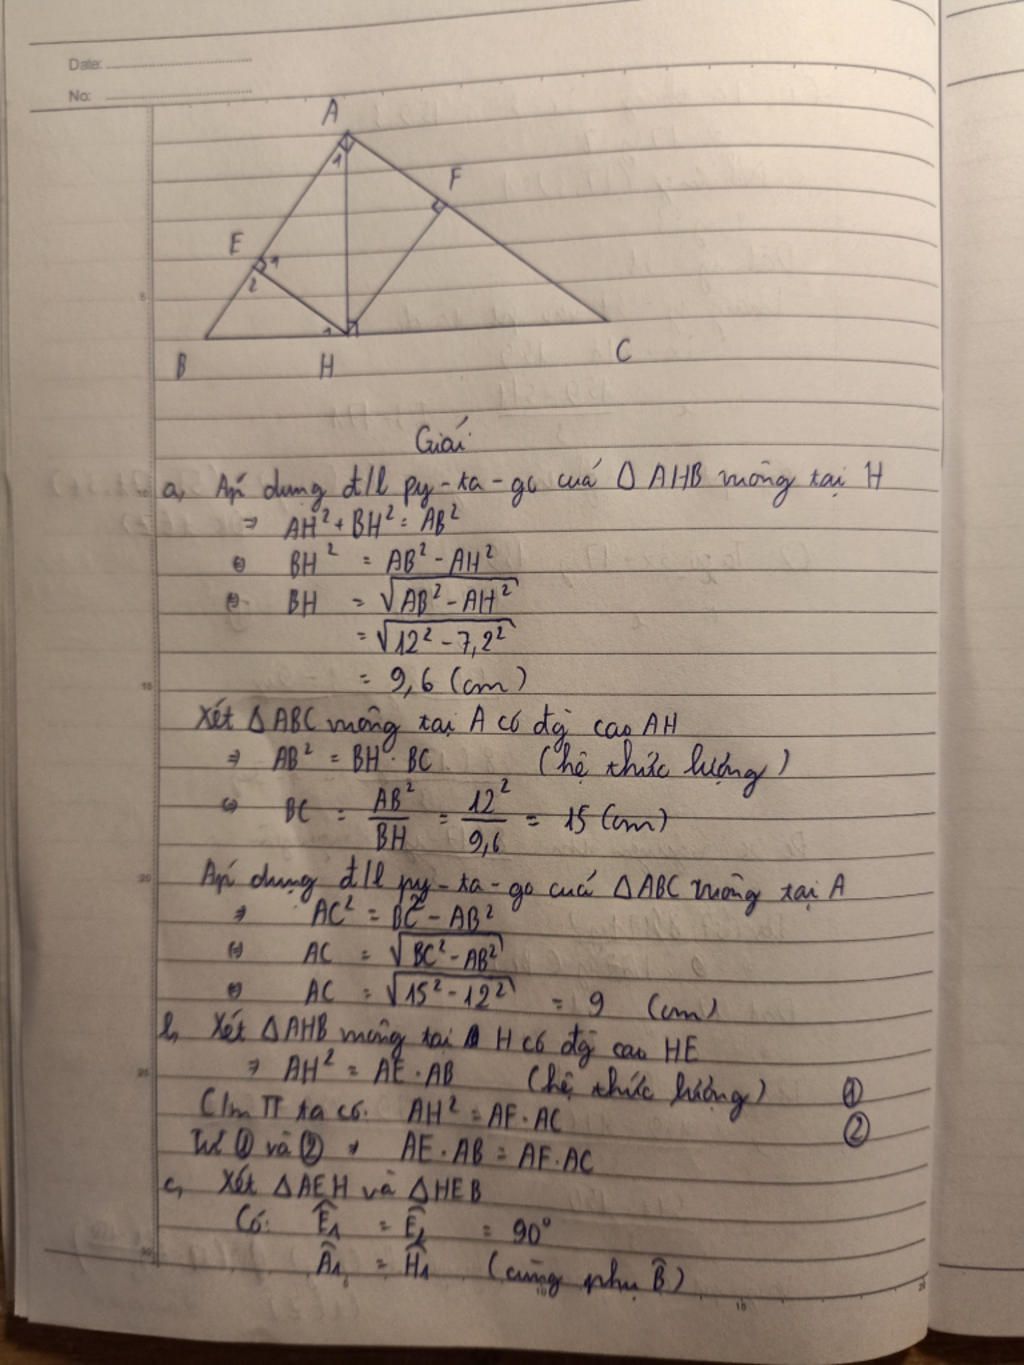 Date:
No:
A
1
F
E
1
2
1
B
H
C
5
Giải
a, Áp dụng đ/l py-ta-go cuả Δ AHB vuông tại H
⇒ AH² + BH² = AB²
⇔ BH² = AB² - AH²
⇔ BH = √AB² - AH²
= √12² - 7,2²
= 9,6 (cm)
15
Xét Δ ABC vuông tại A có đg cao AH
⇒ AB² = BH · BC (hệ thức lượng)
⇔ BC = AB²/BH = 12²/9,6 = 15 (cm)
20
Áp dụng đ/l py-ta-go cuả Δ ABC vuông tại A
⇒ AC² = BC² - AB²
⇔ AC = √BC² - AB²
⇔ AC = √15² - 12² = 9 (cm)
b, Xét Δ AHB vuông tại H có đg cao HE
⇒ AH² = AE · AB (hệ thức lượng) ①
25
C/m TT ta có: AH² = AF · AC ②
Từ ① và ② ⇒ AE · AB = AF · AC
c, Xét Δ AEH và Δ HEB
Có: Ê₁ = Ê₂ = 90°
Â₁ = Ĥ₁ (cùng phụ B̂)
30
10